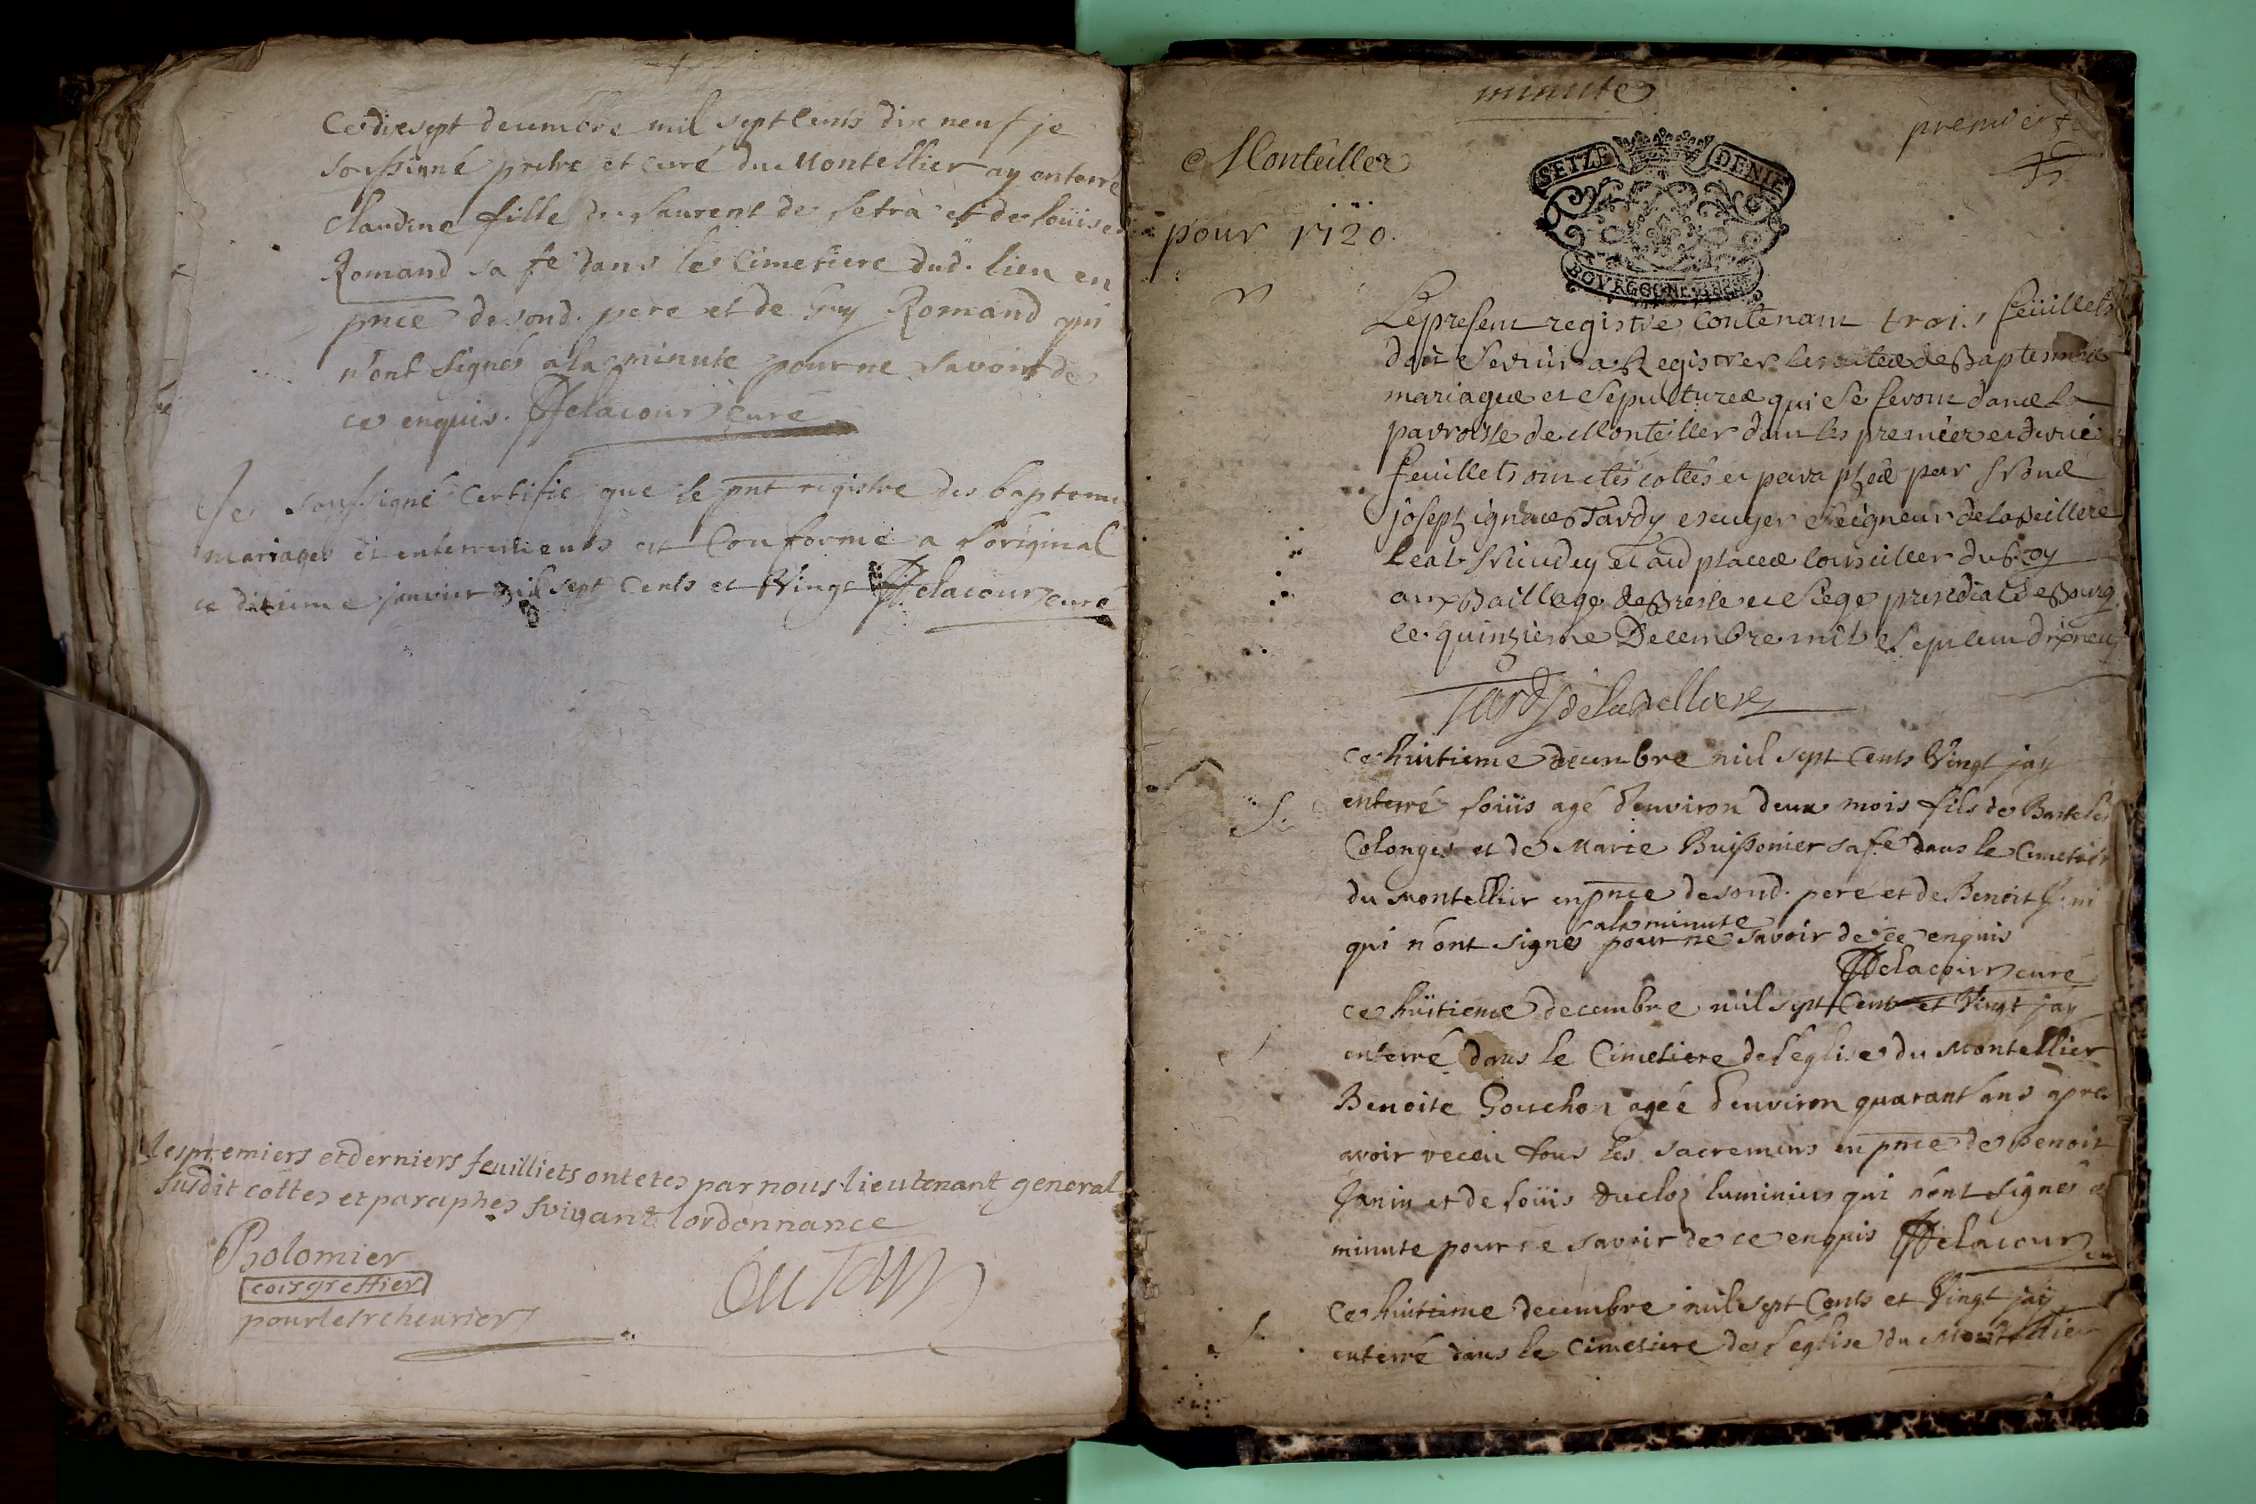 ce dixsept decembre mil sept cents dix neuf je
soussigné prêtre et curé du Montellier ay enterré
Claudine fille de Laurent de Setra et de Loüise
Romand sa fe dans le Cimetiere dud. lieu en
pnce de sond. pere et de Guy Romand qui
n'ont signés a la minute pour ne savoir de
ce enquis. Delacour curé
Je soussigné certifie que le pnt registre des baptemes
mariages et enterrements est Conforme a l'original
ce dixieme janvier mil sept Cents et Vingt Delacour curé
les premiers et derniers feuilliets ont etes par nous lieutenant general
susdit cottes et paraphes suivant lordonnance
Bolomier
coisgreffier
pour le sr cheurier
minute
premier f
Monteiller
pour 1720.
SEIZE DENIE
BOVRGOGNE
Le present registre contenant trois feüillets
doit servir a Registrer les actes de Baptesmes
mariages et sepultures qui se feront dans la
parroisse de Monteiller dont les premier et dernier
feuillets ont etés cottés et paraphés par
joseph ignace Tardy escuyer seigneur de la
au Baillage de Bresse et siege presidial de Bourg
le quinzieme Decembre mil sept cent dix neuf
ce huitieme decembre mil sept Cents Vingt jay
enterré Loüis agé d'environ deux mois fils de
Colonges et de Marie Buissonier sa fe dans le Cimetier
du Montellier en pnce de sond. pere et de Benoit
a la minute
qui n'ont signés pour ne savoir de ce enquis
Delacour curé
ce huitieme decembre mil sept Cents et Vingt jay
enterré dans le Cimetiere de l'eglise du Montellier
Benoite Gouchon agée d'environ quarant ans apres
avoir receu tous les sacremens en pnce de Benoit
Janin et de Loüis Ducloz luminiers qui n'ont signés a
minute pour ne savoir de ce enquis Delacour cu
Ce huitieme decembre mil sept Cents et Vingt jay
enterré dans le Cimetiere de l'eglise du Montellier